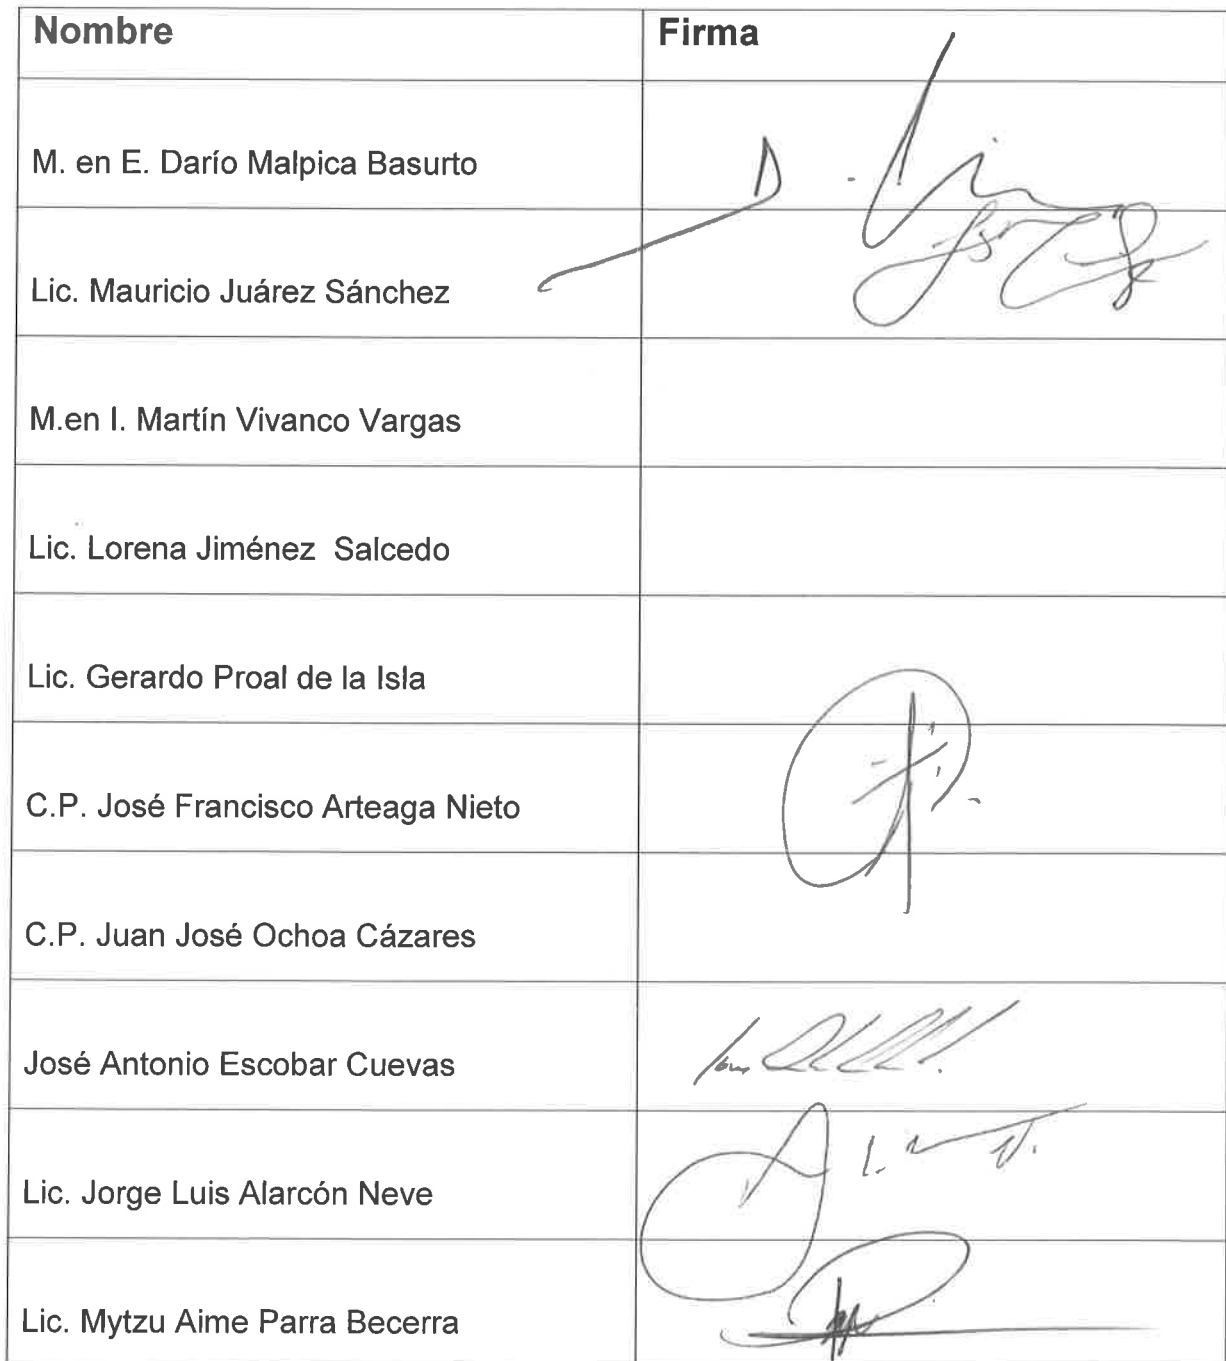 Nombre Firma
M. en E. Darío Malpica Basurto
Lic. Mauricio Juárez Sánchez
M.en I. Martín Vivanco Vargas
Lic. Lorena Jiménez Salcedo
Lic. Gerardo Proal de la Isla
C.P. José Francisco Arteaga Nieto
C.P. Juan José Ochoa Cázares
José Antonio Escobar Cuevas
Lic. Jorge Luis Alarcón Neve
Lic. Mytzu Aime Parra Becerra